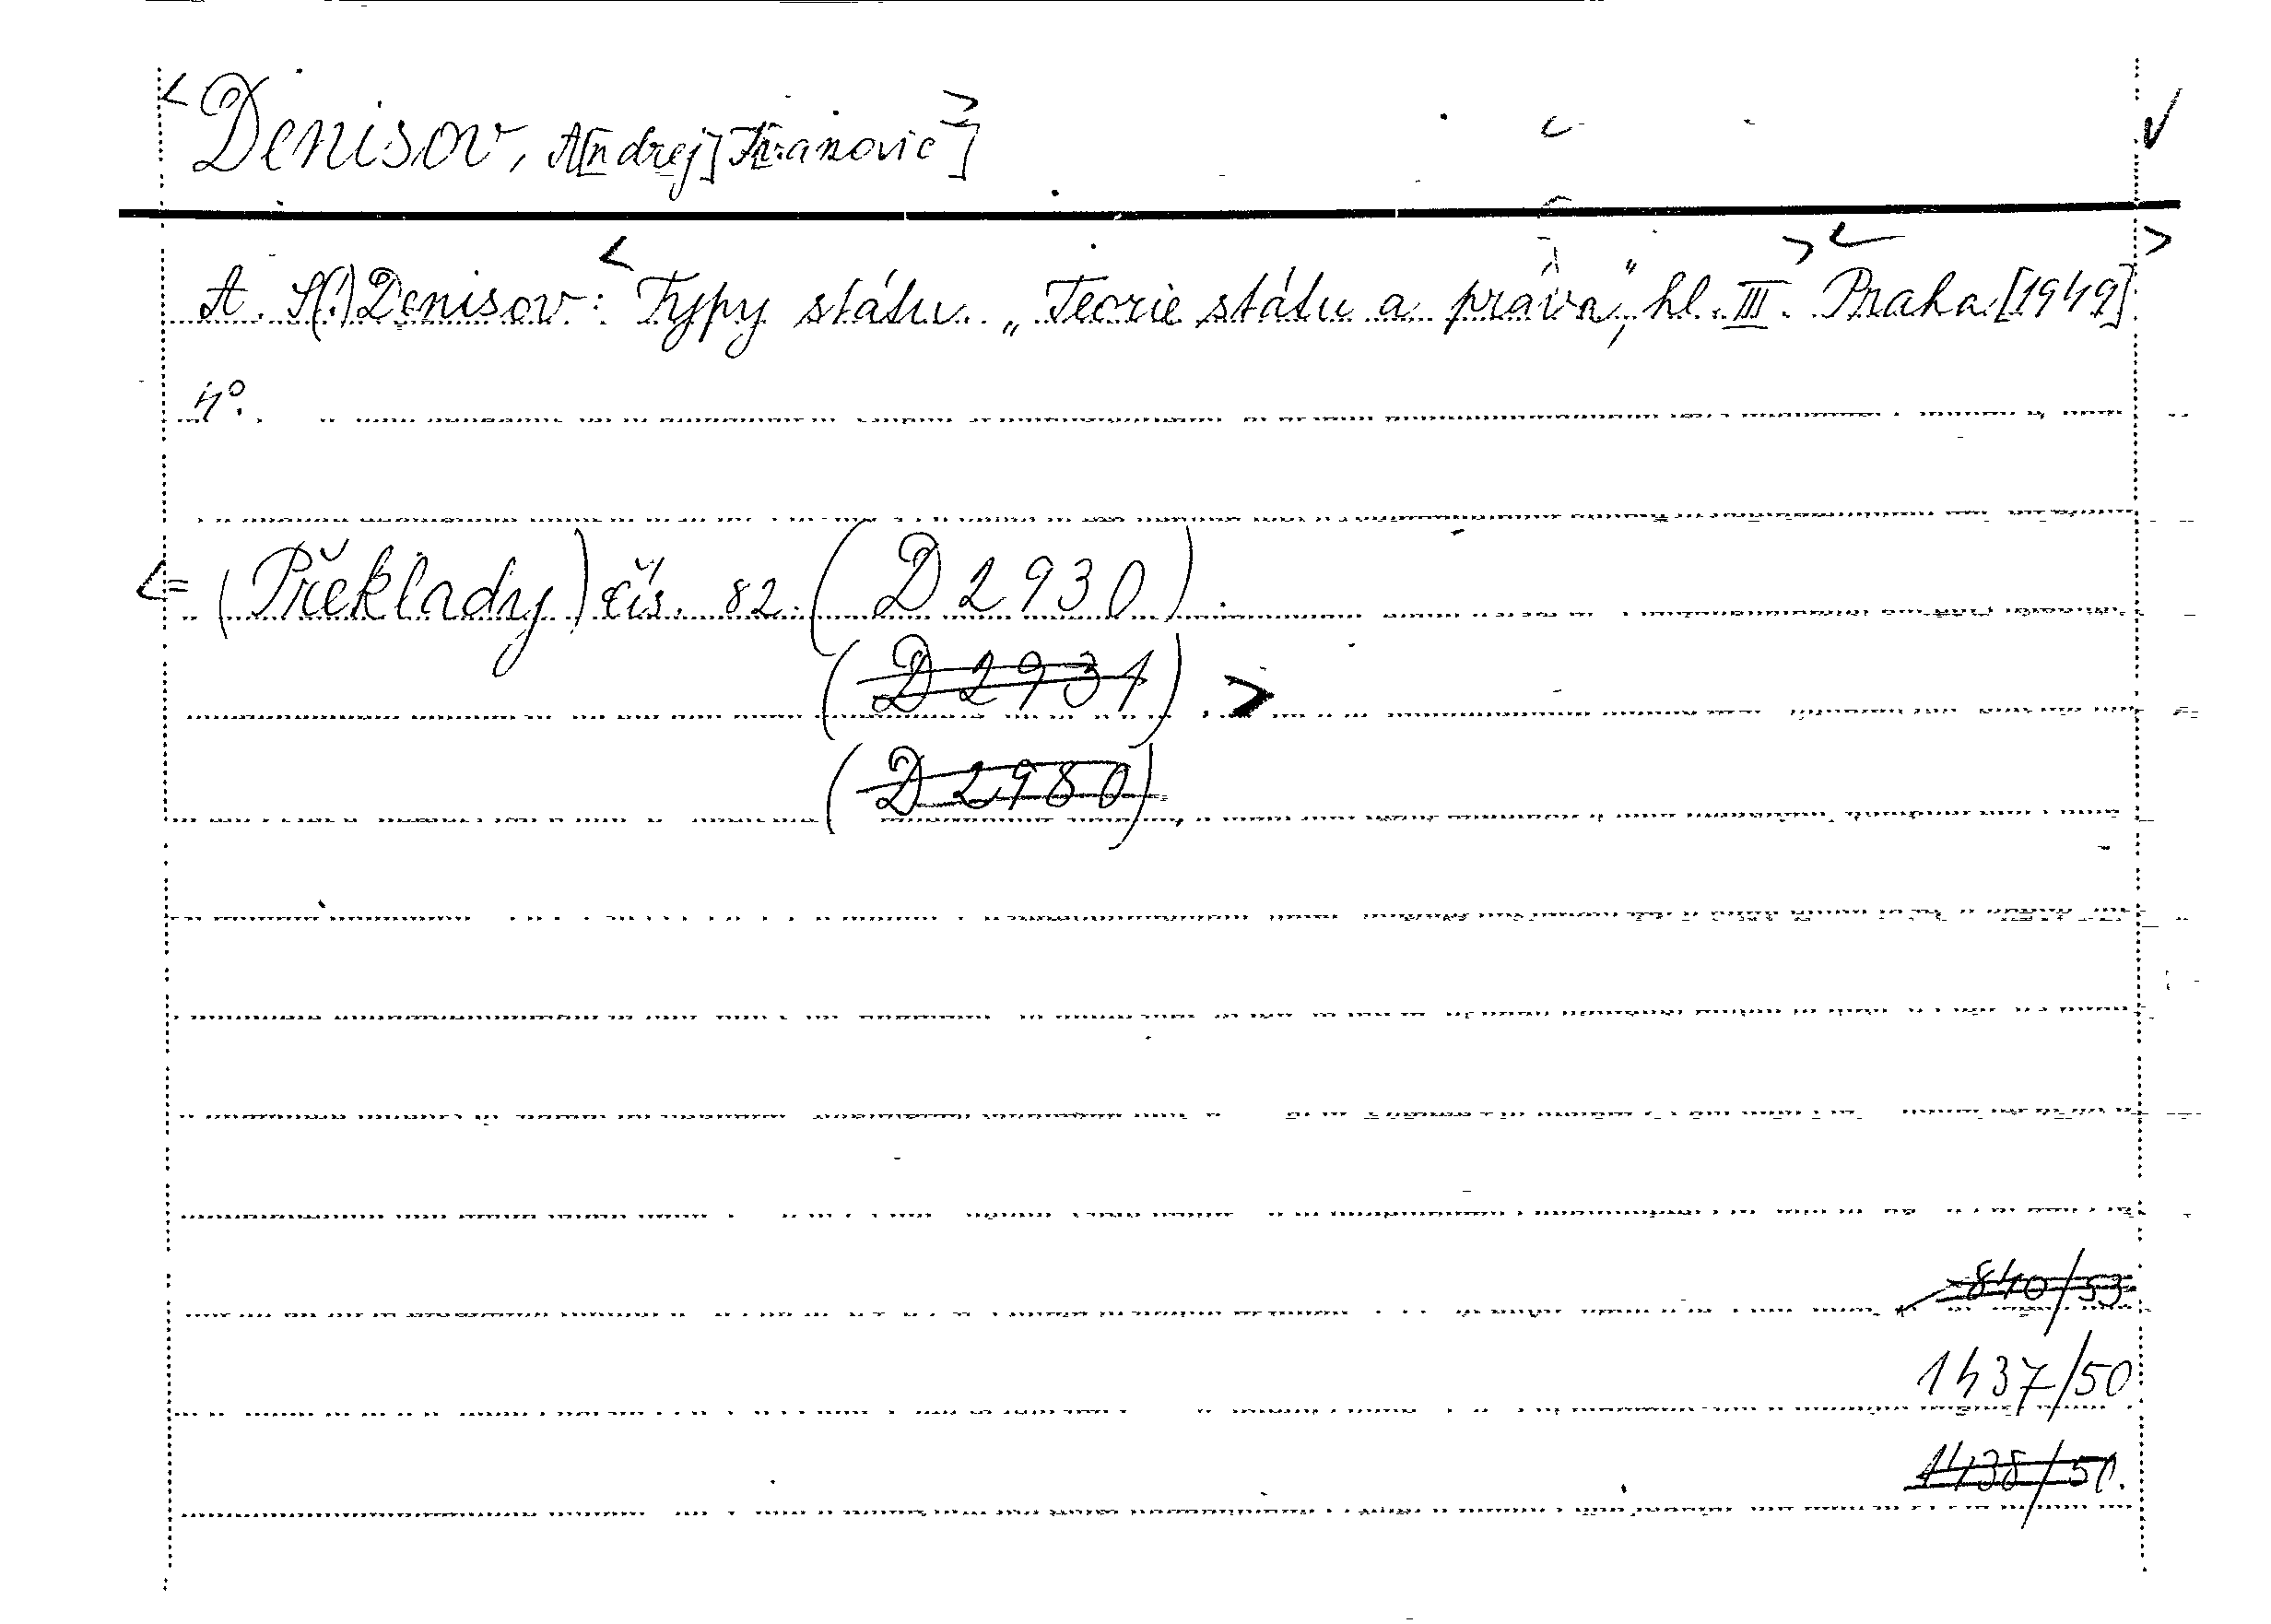 <Denisov, A[ndrej] I[vanovič]>
A. I(.) Denisov: <Typy státu. „Teorie státu a práva“, hl. III.> <Praha [1949].>
4°.
<= (Překlady) čís. 82. (D 2930).
(D 2931). >
(D 2980).
840/53
1437/50
1438/50.